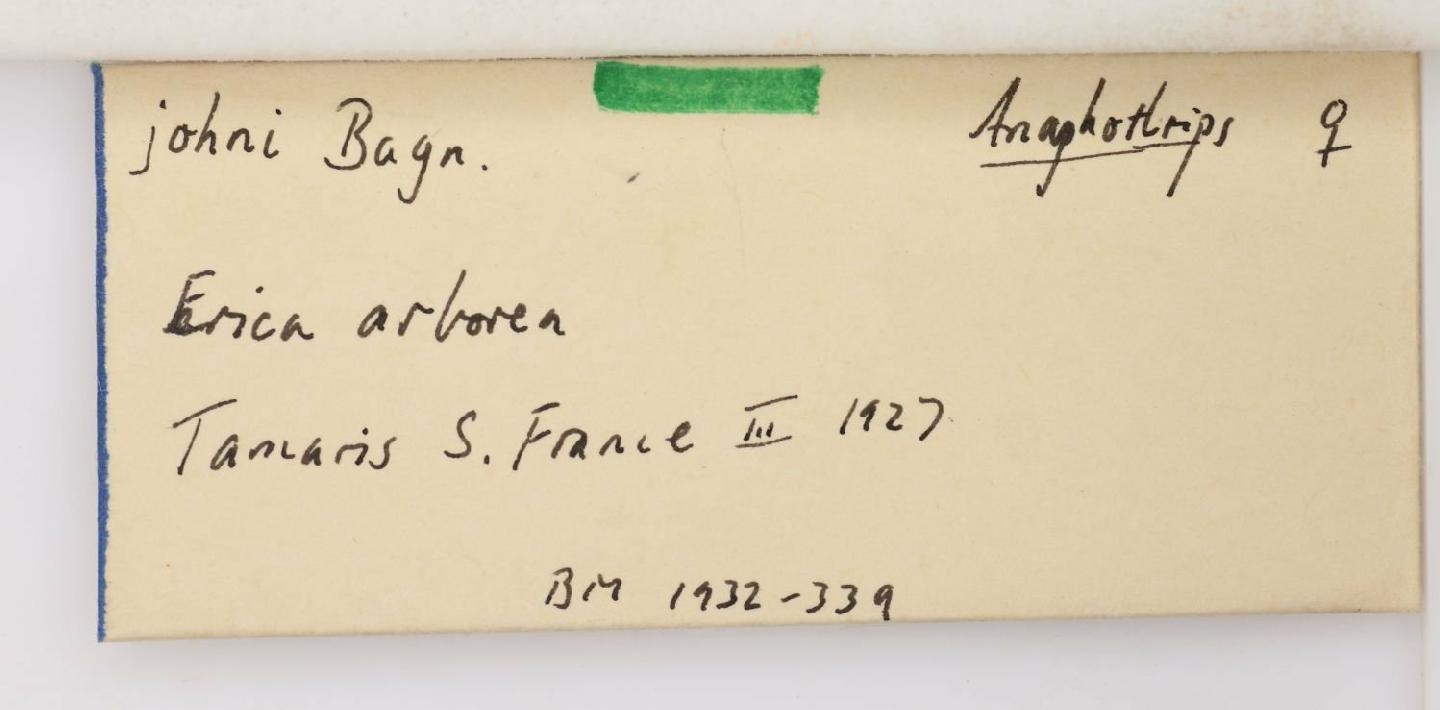 johni Bagn. Anaphothrips ♀
Erica arborea
Tamaris S. France III 1927
BM 1932-339